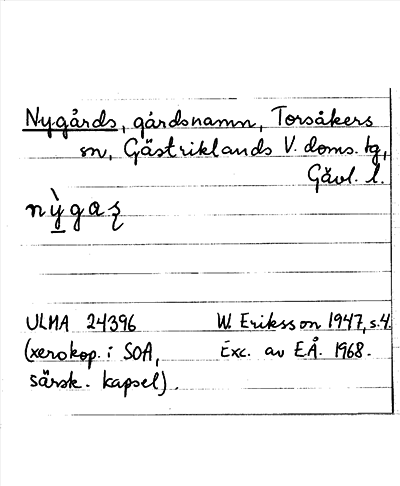 Nygårds, gårdsnamn, Torsåkers
sn, Gästriklands V. doms. tg,
Gävl. l.
ULMA 24396 W. Eriksson 1947, s. 4.
(xerokop. i SOA, Exc. av EÅ. 1968.
särsk. kapsel).